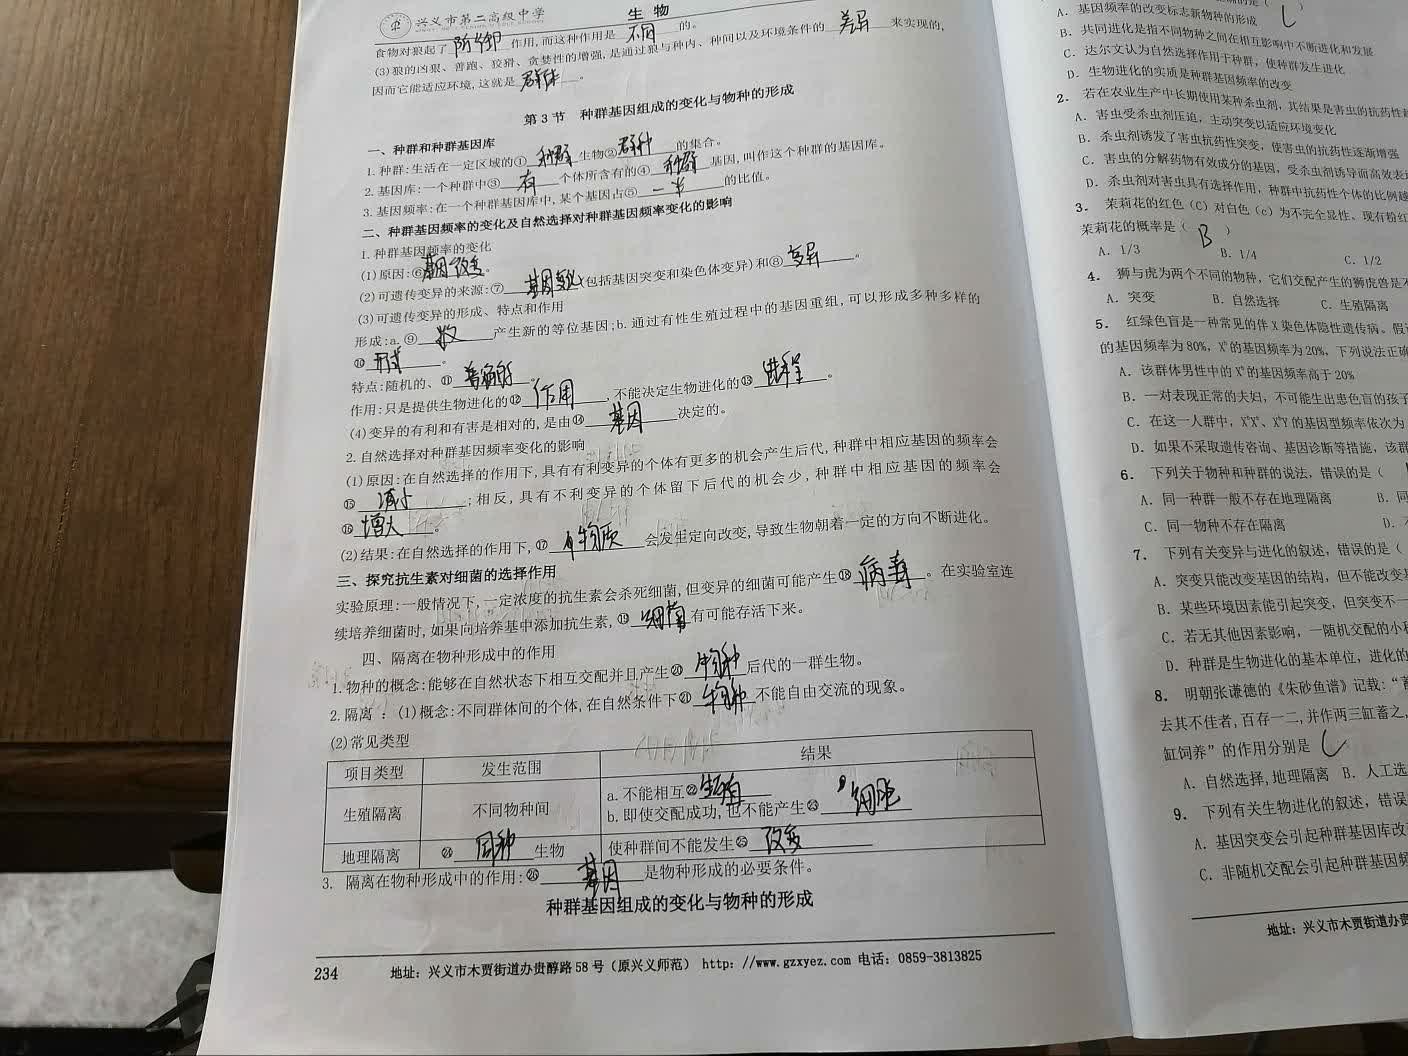 兴义市第二高级中学 生物
食物对狼起了 阶御 作用,而这种作用是 不同 的。
(3)狼的凶狠、善跑、狡猾、贪婪性的增强,是通过狼与种内、种间以及环境条件的 差异 来实现的,
因而它能适应环境,这就是 群体 。
第3节 种群基因组成的变化与物种的形成
一、种群和种群基因库
1.种群:生活在一定区域的① 种群 生物② 群种 的集合。
2.基因库:一个种群中③ 有 个体所含有的④ 种群 基因,叫作这个种群的基因库。
3.基因频率:在一个种群基因库中,某个基因占⑤ 一半 的比值。
二、种群基因频率的变化及自然选择对种群基因频率变化的影响
1.种群基因频率的变化
(1)原因:⑥ 基因改变 。
(2)可遗传变异的来源:⑦ 基因变化 (包括基因突变和染色体变异)和⑧ 变异 。
(3)可遗传变异的形成、特点和作用
形成:a.⑨ 数 产生新的等位基因;b.通过有性生殖过程中的基因重组,可以形成多种多样的
⑩ 形式 。
特点:随机的、⑪ 普遍的 。
作用:只是提供生物进化的⑫ 作用 ,不能决定生物进化的⑬ 进程 。
(4)变异的有利和有害是相对的,是由⑭ 基因 决定的。
2.自然选择对种群基因频率变化的影响
(1)原因:在自然选择的作用下,具有有利变异的个体有更多的机会产生后代,种群中相应基因的频率会
⑮ 减小 ;相反,具有不利变异的个体留下后代的机会少,种群中相应基因的频率会
⑯ 增大 。
(2)结果:在自然选择的作用下,⑰ 物质 会发生定向改变,导致生物朝着一定的方向不断进化。
三、探究抗生素对细菌的选择作用
实验原理:一般情况下,一定浓度的抗生素会杀死细菌,但变异的细菌可能产生⑱ 病毒 。在实验室连
续培养细菌时,如果向培养基中添加抗生素,⑲ 细菌 有可能存活下来。
四、隔离在物种形成中的作用
1.物种的概念:能够在自然状态下相互交配并且产生⑳ 物种 后代的一群生物。
2.隔离 :(1)概念:不同群体间的个体,在自然条件下㉑ 物种 不能自由交流的现象。
(2)常见类型
项目类型 发生范围 结果
生殖隔离 不同物种间 a.不能相互㉒ 生殖
b.即使交配成功,也不能产生㉓ 细胞
地理隔离 ㉔ 同种 生物 使种群间不能发生㉕ 改变
3. 隔离在物种形成中的作用:㉖ 基因 是物种形成的必要条件。
种群基因组成的变化与物种的形成
234 地址:兴义市木贾街道办贵醇路58号(原兴义师范) http://www.gzxyez.com 电话:0859-3813825
A.基因频率的改变标志新物种的形成
B.共同进化是指不同物种之间在相互影响中不断进化和发展
C.达尔文认为自然选择作用于种群,使种群发生进化
D.生物进化的实质是种群基因频率的改变
2.若在农业生产中长期使用某种杀虫剂,其结果是害虫的抗药性
A.害虫受杀虫剂压迫,主动突变以适应环境变化
B.杀虫剂诱发了害虫抗药性突变,使害虫的抗药性逐渐增强
C.害虫的分解药物有效成分的基因,受杀虫剂诱导而高效表
D.杀虫剂对害虫具有选择作用,种群中抗药性个体的比例
3.茉莉花的红色(C)对白色(c)为不完全显性。现有粉红
茉莉花的概率是( B )
A.1/3 B.1/4 C.1/2
4.狮与虎为两个不同的物种,它们交配产生的狮虎兽是
A.突变 B.自然选择 C.生殖隔离
5.红绿色盲是一种常见的伴X染色体隐性遗传病。假
的基因频率为80%,Xᵇ的基因频率为20%,下列说法正确
A.该群体男性中的Xᵇ的基因频率高于20%
B.一对表现正常的夫妇,不可能生出患色盲的孩子
C.在这一人群中,XᵇXᵇ、XᵇY的基因型频率依次为
D.如果不采取遗传咨询、基因诊断等措施,该群
6.下列关于物种和种群的说法,错误的是(
A.同一种群一般不存在地理隔离 B.同
C.同一物种不存在隔离 D.
7.下列有关变异与进化的叙述,错误的是(
A.突变只能改变基因的结构,但不能改变
B.某些环境因素能引起突变,但突变不一
C.若无其他因素影响,一随机交配的小
D.种群是生物进化的基本单位,进化的
8.明朝张谦德的《朱砂鱼谱》记载:“蓄
去其不佳者,百存一二,并作两三缸蓄之,
缸饲养”的作用分别是
A.自然选择,地理隔离 B.人工选
9.下列有关生物进化的叙述,错误
A.基因突变会引起种群基因库改
C.非随机交配会引起种群基因频
地址:兴义市木贾街道办贵